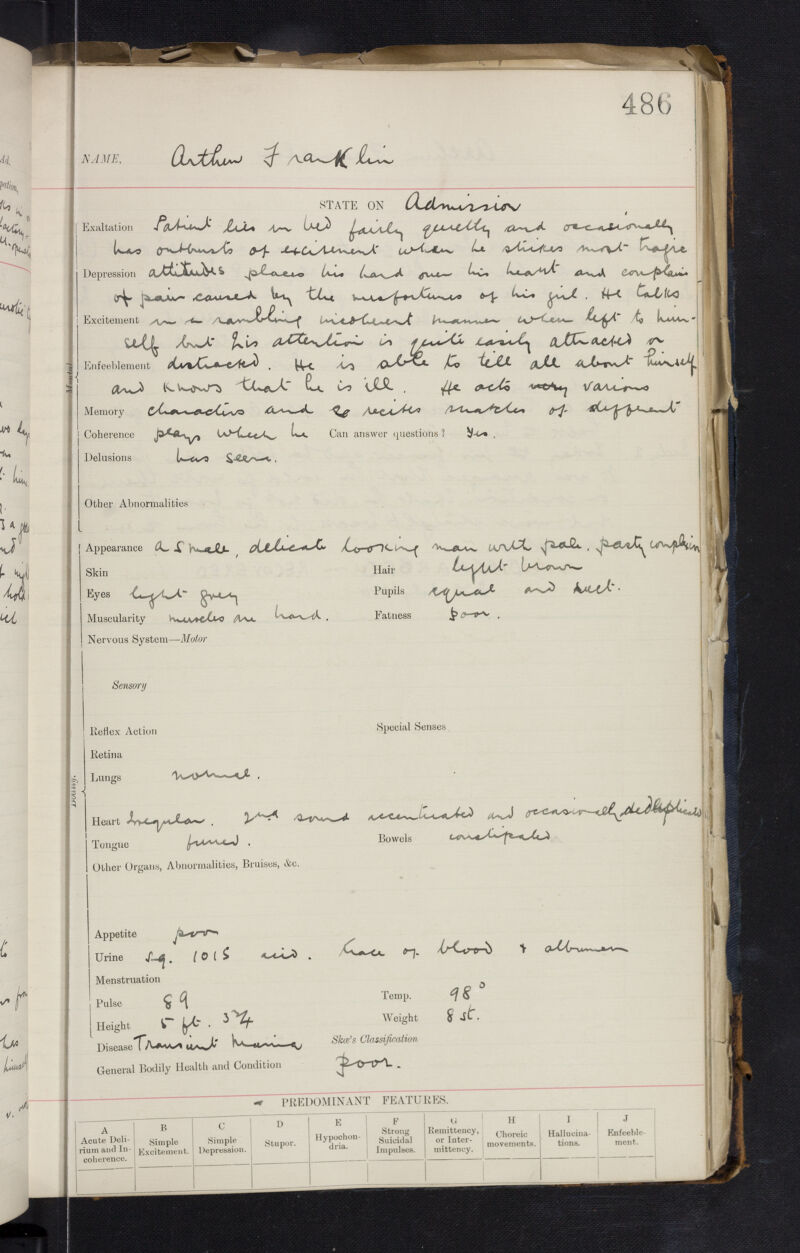 486
NAME. Arthur Franklin
STATE ON Admission
Exaltation Patient lies in bed fairly quietly and occasionally
has outbursts of excitement when he strikes most tragic
Depression attitudes places his hand over his heart and complains
of pain caused by the misfortunes of his girl. He talks
Excitement in a rambling incoherent manner when left to him-
self but his attention is quite easily attracted or
Enfeeblement distracted. He is able to tell all about himself
and knows that he is ill. He acts very various
Memory characters and so recites snatches of different
Coherence plays which he Can answer questions? Yes.
Delusions has seen.
Other Abnormalities
Mental
Appearance a small, delicate looking man with pale, pasty complexion
Skin Hair light brown
Eyes light grey Pupils equal and react.
Muscularity muscles are hard. Fatness poor.
Nervous System—Motor
Sensory
Reflex Action Special Senses
Retina
Lungs normal.
Bodily.
Heart Irregular. 2nd sound accentuated and occasionally reduplicated
Tongue furred. Bowels constipated
Other Organs, Abnormalities, Bruises, &c.
Appetite poor
Urine s.g. 1015 acid. trace of blood & albumen
Menstruation
Pulse 89 Temp. 98°
Height 5 ft. 3¾ Weight 8 st.
Disease Transient Mania Skae's Classification
General Bodily Health and Condition poor.
PREDOMINANT FEATURES.
A B C D E F G H I J
Acute Delirium and Incoherence. Simple Excitement. Simple Depression. Stupor. Hypochondria. Strong Suicidal Impulses. Remittency, or Intermittency. Choreic movements. Hallucinations. Enfeeblement.